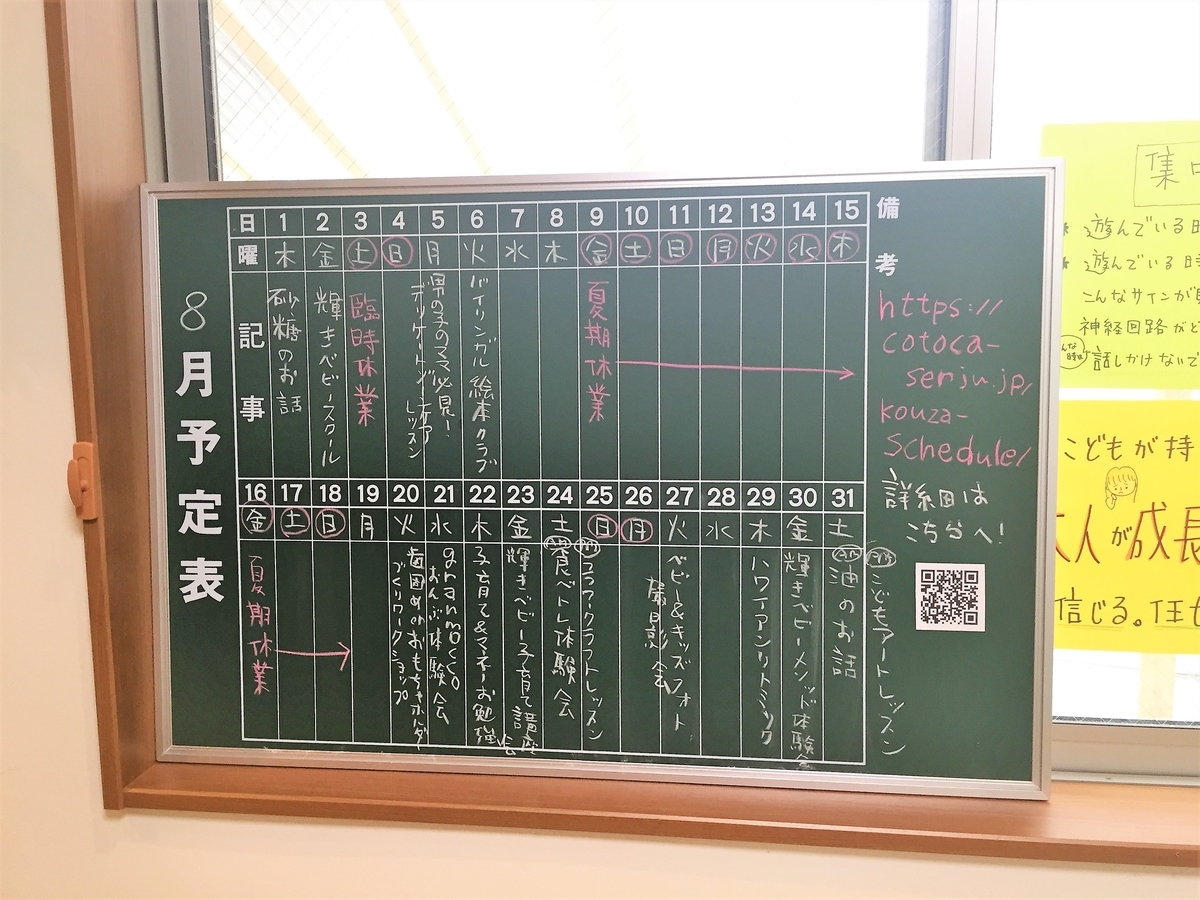 8月予定表
日 1 2 3 4 5 6 7 8 9 10 11 12 13 14 15
曜 木 金 土 日 月 火 水 木 金 土 日 月 火 水 木
記事
砂糖のお話
輝きベビースクール
臨時休業
男の子のママ必見!
デリケートゾーンケア
レッスン
バイリンガル絵本クラブ
夏期休業
16 17 18 19 20 21 22 23 24 25 26 27 28 29 30 31
金 土 日 月 火 水 木 金 土 日 月 火 水 木 金 土
夏期休業
歯固めorおもちゃホルダー
づくりワークショップ
granmocco
おんぶ体験会
子育て&マネーお勉強
会
輝きベビー子育て講座
食べトレ体験会
ユラワークラフトレッスン
ベビー&キッズフォト
撮影会
ハワイアンリトミック
輝きベビーメソッド体験会
油のお話
こどもアートレッスン
備考
https://
cotoca-
senju.jp/
kouza-
schedule/
詳細は
こちらへ!
集中
遊んでいる
遊んでいる
こんなサインが
神経回路が
話しかけないで
こどもが持
大人が成長
信じる。任せ